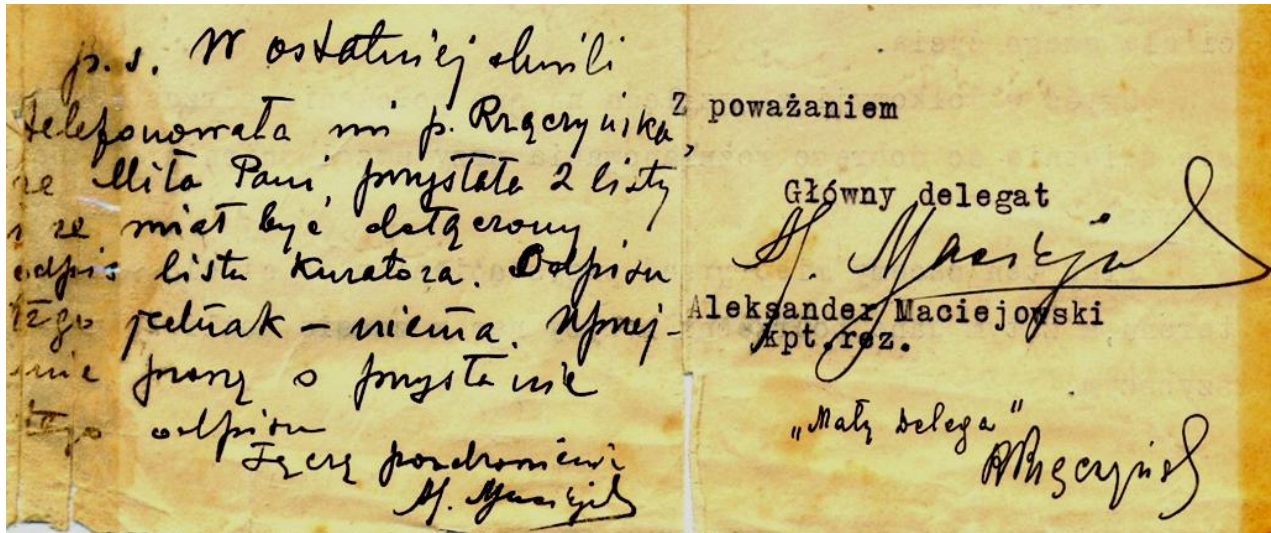 p.s. W ostatniej chwili
telefonowała mi p. Rzączyńska,
że Miła Pani przysłała 2 listy
i że miał być dołączony
odpis listu Kuratora. Odpisu
tego jednak – niema. Uprzej-
mie proszę o przysłanie
tego odpisu
Łączę pozdrowienia
A. Maciejowski
Z poważaniem
Główny delegat
A. Maciejowski
Aleksander Maciejowski
kpt.rez.
„Mały Delega"